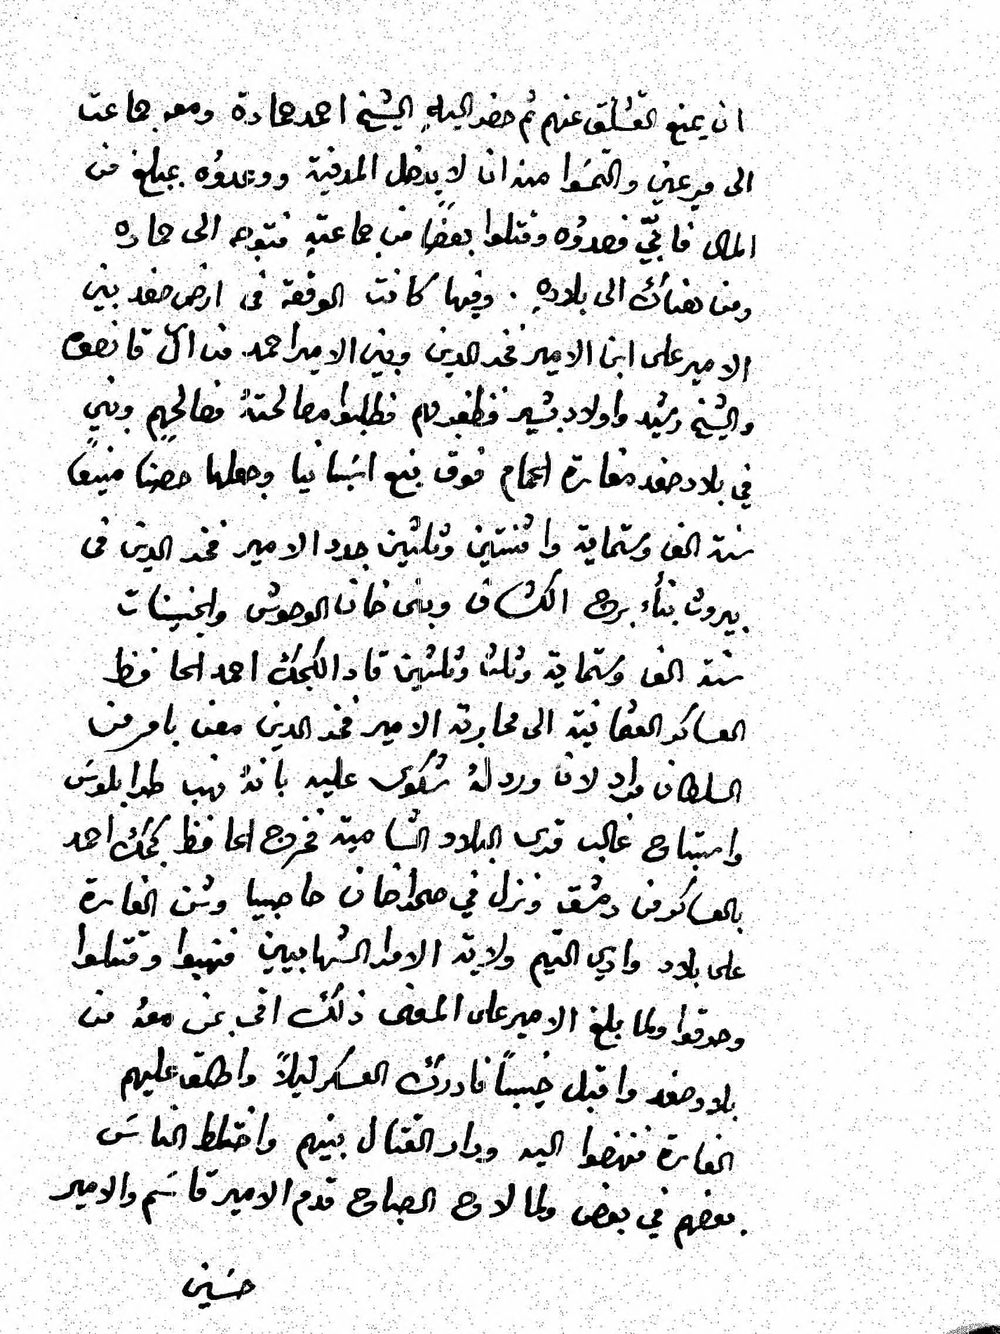 ان يمنع القشلق عنهم ثم حضر اليهِ الشيخ احمد حمادة ومعه جماعت
الى مرعين والتمسَوا منه ان لا يدخل المدفنة ووعدوُه بمبلغ من
المال فابىّ فصدوُه وقتلوا بعضًا من جماعتهِ فتوجه الى حماره
ومن هناك الى بلادهِ . وفيها كانت الوقعة فى ارض صفد بين
الامير على ابن الامير فخر الدين وبين الامير احمد من ال قانصوه
والشيخ رشيد واولاد بشير فظفر بهم فطلبوا مصالحتهُ فصالحهم وبنى
في بلاد صفد مغارة الحمام فوق نبع اسَبانيا وجعلها حصنا منيعًا
سنة الف وستماية واثنتين وثلثين جدد الامير فخر الدين فى
بيروت بناءُ برج الكشاف وبنى خان الوحوش والجنينات
سنة الف وستماية وثلث وثلثين قاد الكجك احمد الحافظ
العساكر العثمانية الى محاربة الامير فخر الدين معن بامر من
السلطان مراد لان ورد لهُ شكوى عليه بانهُ نهب طرابلوسَ
واستباح غالب قرى البلاد الشامية فخرج الحافظ كجك احمد
بالعساكر من دمشق ونزل في صحراخان حاصبيا وشن الغارة
على بلاد وادي التيم ولاية الامرا الشهابيين فنهبوا وقتلوا
وحرقوا ولما بلغ الامير على المعنى ذلك اتى بمن معهُ من
بلاد صفد واقبل خببًا فادرك العسكر ليلاً واطلق عليهم
الغارة فنهضوا اليه ودار القتال بينهم واختلط الناسَ
بعضهم في بعض ولما لاح الصباح قدم الامير قاسَم والامير
حسَين